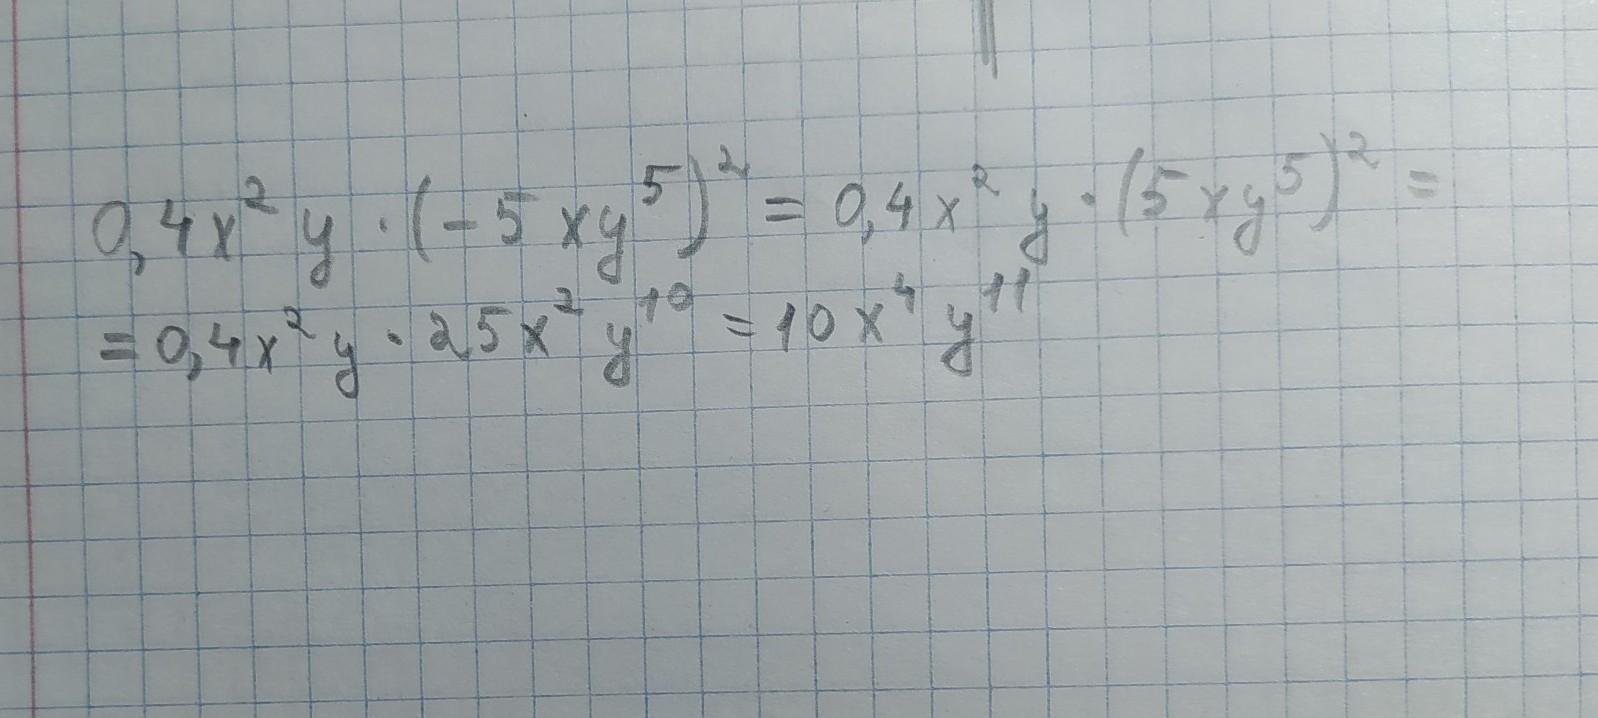 0,4x² y · (-5 xy⁵)² = 0,4 x² y · (5 xy⁵)² =
= 0,4x² y · 25x² y¹⁰ = 10 x⁴ y¹¹